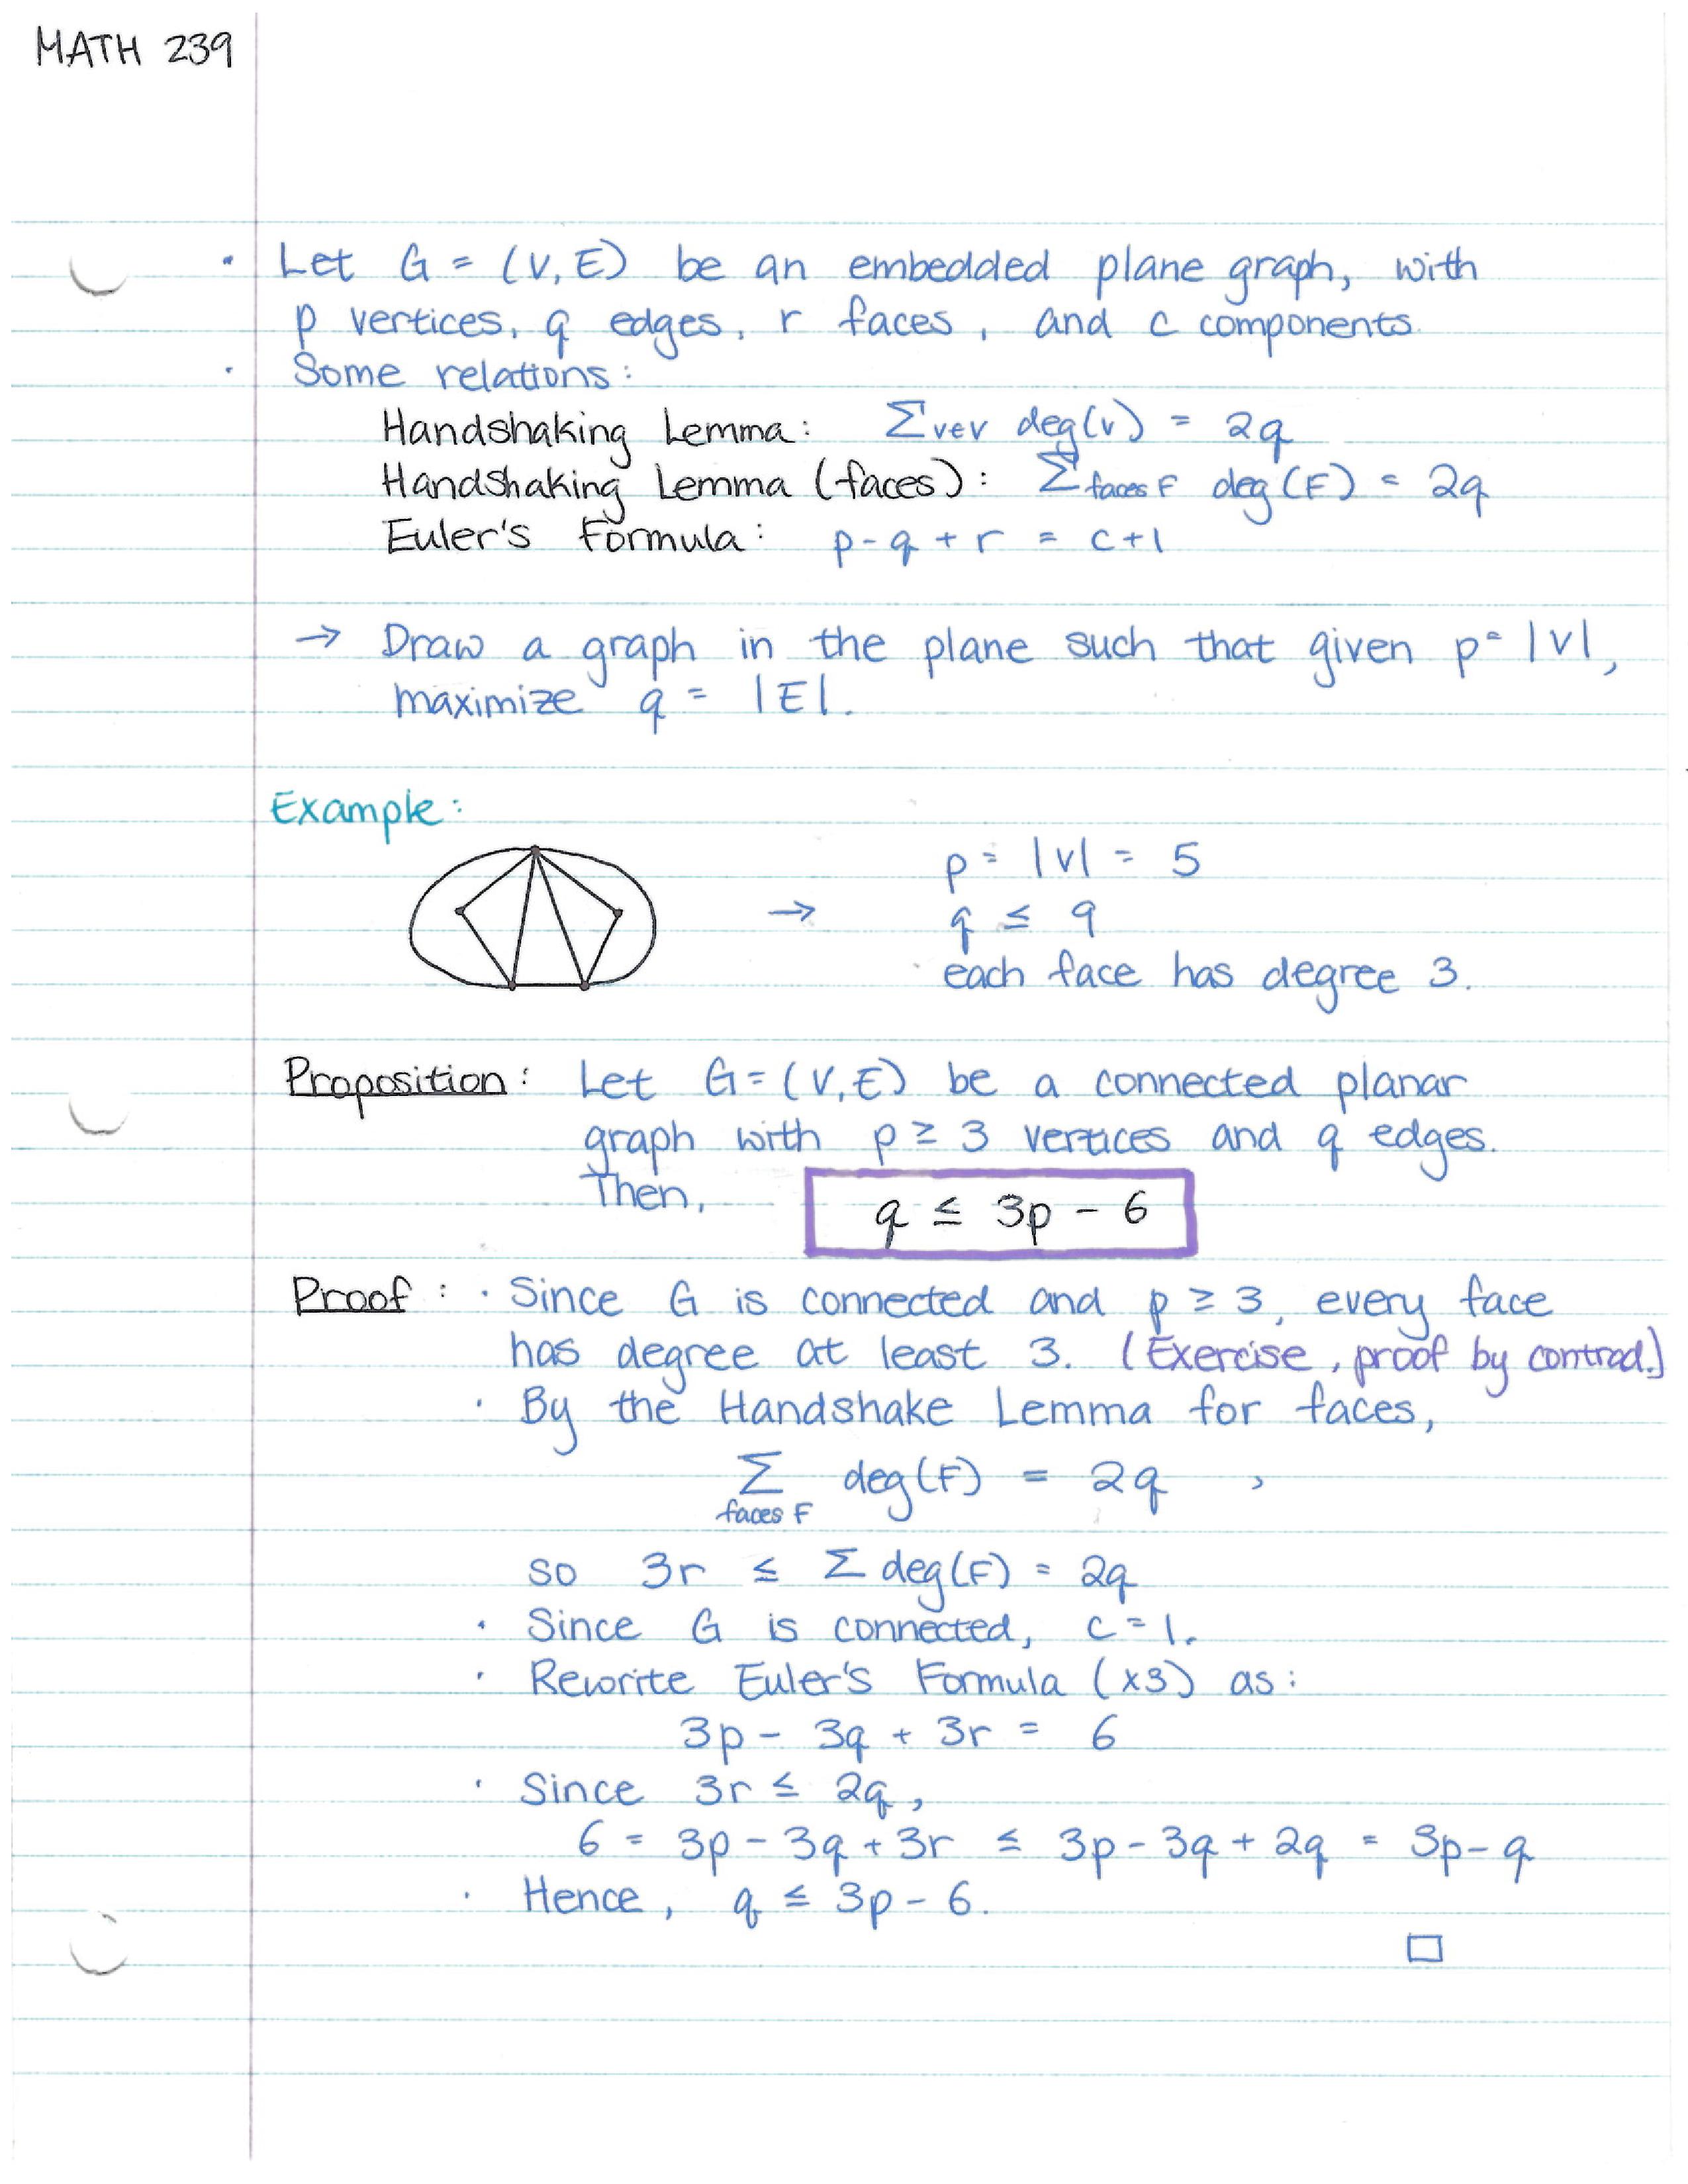 MATH 239
· Let G = (V, E) be an embedded plane graph, with
p vertices, q edges, r faces, and c components.
· Some relations:
Handshaking Lemma: Σ v∈V deg(v) = 2q
Handshaking Lemma (faces): Σ faces F deg(F) = 2q
Euler's Formula: p - q + r = c + 1
→ Draw a graph in the plane such that given p = |V|,
maximize q = |E|.
Example:
→ p = |V| = 5
q ≤ 9
each face has degree 3.
Proposition: Let G = (V, E) be a connected planar
graph with p ≥ 3 vertices and q edges.
Then, q ≤ 3p - 6
Proof: · Since G is connected and p ≥ 3, every face
has degree at least 3. (Exercise, proof by contrad.)
· By the Handshake Lemma for faces,
Σ deg(F) = 2q ,
faces F
so 3r ≤ Σ deg(F) = 2q
· Since G is connected, c = 1.
· Rewrite Euler's Formula (x3) as:
3p - 3q + 3r = 6
· Since 3r ≤ 2q,
6 = 3p - 3q + 3r ≤ 3p - 3q + 2q = 3p - q
· Hence, q ≤ 3p - 6.
□